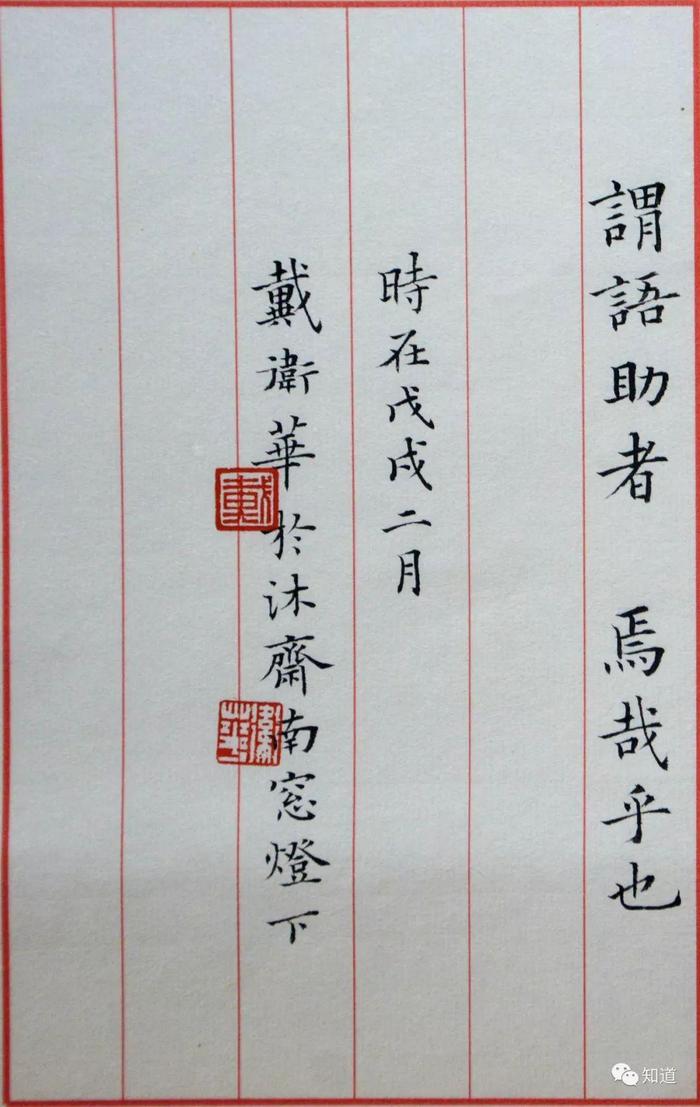 謂語助者　焉哉乎也
時在戊戌二月
戴衛華於沐齋南窓燈下
戴
衛華
知道